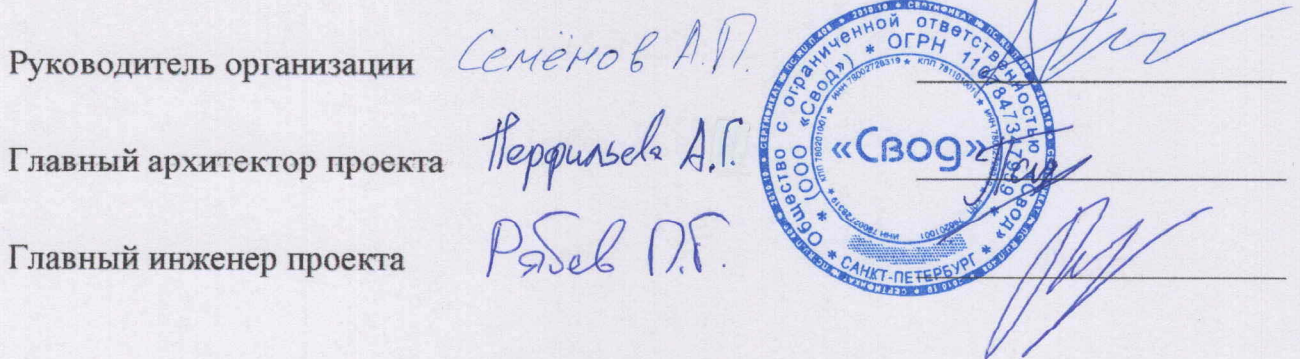 Руководитель организации Семёнов А.П.
Главный архитектор проекта Перфильева А.Г.
Главный инженер проекта Рябев П.Г.
Общество с ограниченной ответственностью «Свод»
(ООО «Свод») * ОГРН
«Свод»
* САНКТ-ПЕТЕРБУРГ *